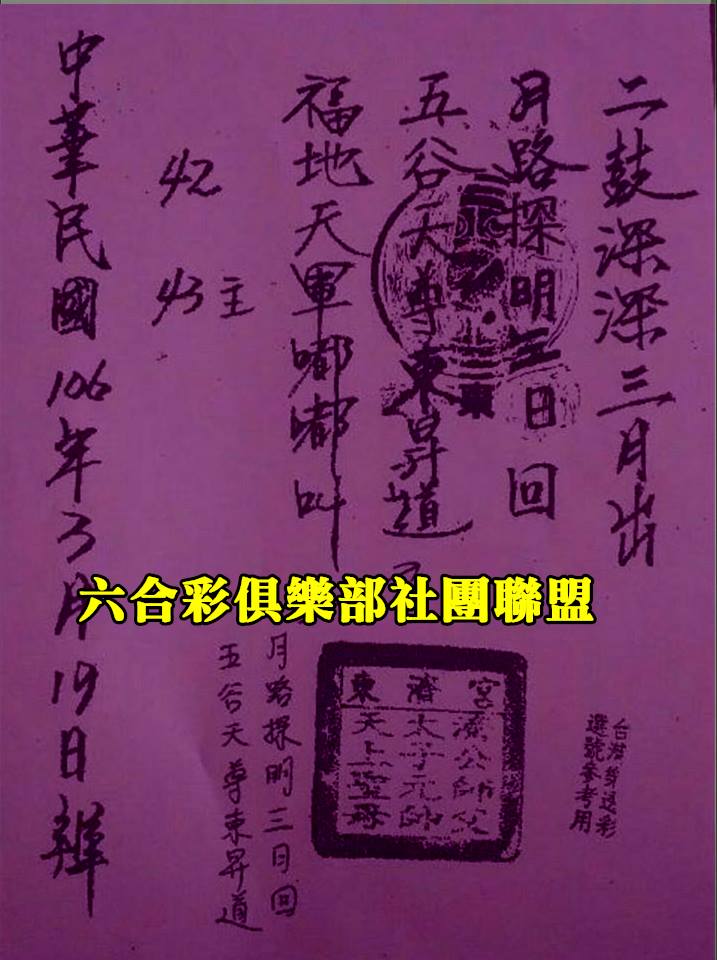 二鼓深深三月出
月路探明三日回
五谷大尊東昇道
福地天軍嘟嘟叫
主
42 43
中華民國106年3月19日
六合彩俱樂部社團聯盟
月路探明三日回
五谷天尊東昇道
東濟宮
濟公師父
太子元帥
天上聖母
選號參考用